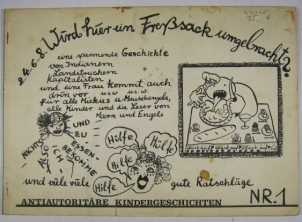 2 4 6 8 Wird hier ein Freßsack umgebracht?
eine spannende Geschichte
von Indianern
Landstreichern
Kapitalisten
und eine Frau kommt auch
drin vor usw usw
für alle Mickus u. Mausebengels
alle Kinder und die Leser von
Marx und Engels
NICHTS
ALSO
UND
ZU
ESSEN
BEKOMME
ICH
Hilfe
Hilfe
Hilfe
Hilfe
und viele viele gute Ratschläge
ANTIAUTORITÄRE KINDERGESCHICHTEN NR.1